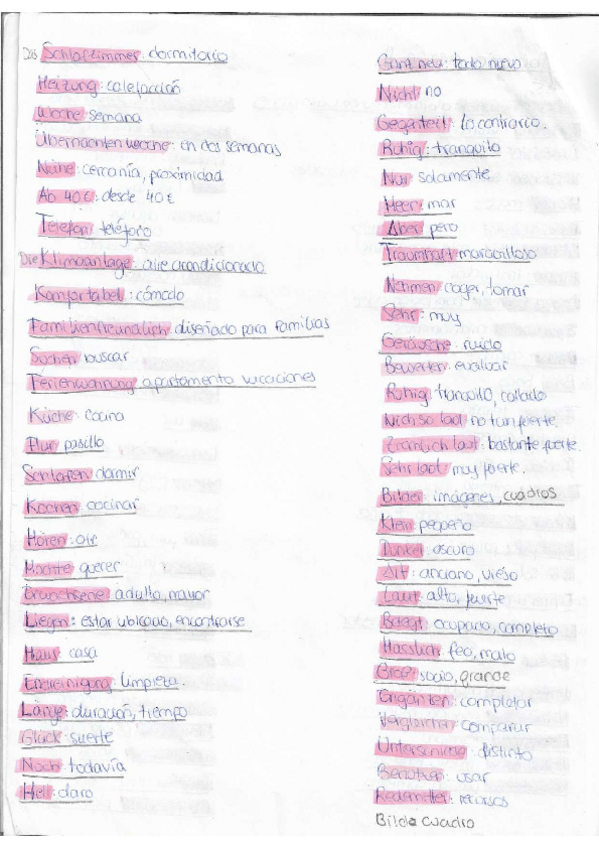 Das Schlafzimmer: dormitorio
Heizung: calefacción
Woche: semana
Übernächten woche: en dos semanas
Nähe: cercanía, proximidad
Ab 40€: desde 40€
Telefon: teléfono
Die Klimaanlage: aire acondicionado
Komfortabel: cómodo
Familienfreundlich diseñado para familias
Suchen buscar
Ferienwohnung apartamento vacaciones
Küche: cocina
Flur pasillo
Schlafen dormir
Kochen cocinar
Hören: oír
Möchte querer
Erwachsene adulto, mayor
Liegen: estar ubicado, encontrarse
Haus casa
Endreinigung limpieza
Länge: duración, tiempo
Glück suerte
Noch todavía
Hell: claro
Ganz neu: todo nuevo
Nicht no
Gegenteil: lo contrario.
Ruhig: tranquilo
Nur solamente
Meer: mar
Aber pero
Traumhaft maravilloso
Nehmen coger, tomar
Sehr: muy
Geräusche: ruido
Bewerten: evaluar
Ruhig tranquilo, callado
Nich so laut no tan fuerte.
Ziemlich laut: bastante fuerte.
Sehr laut: muy fuerte.
Bilder: imágenes, cuadros
Klein: pequeño
Dunkel: oscuro
Alt: anciano, viejo
Laut: alto, fuerte
Belegt: ocupado, completo
Hässlich: feo, malo
Groß: socio, grande
Ergänzen: completar
Vergleichen comparar
distinto
Benutzen: usar
Redemittel: recursos
Bilde cuadro